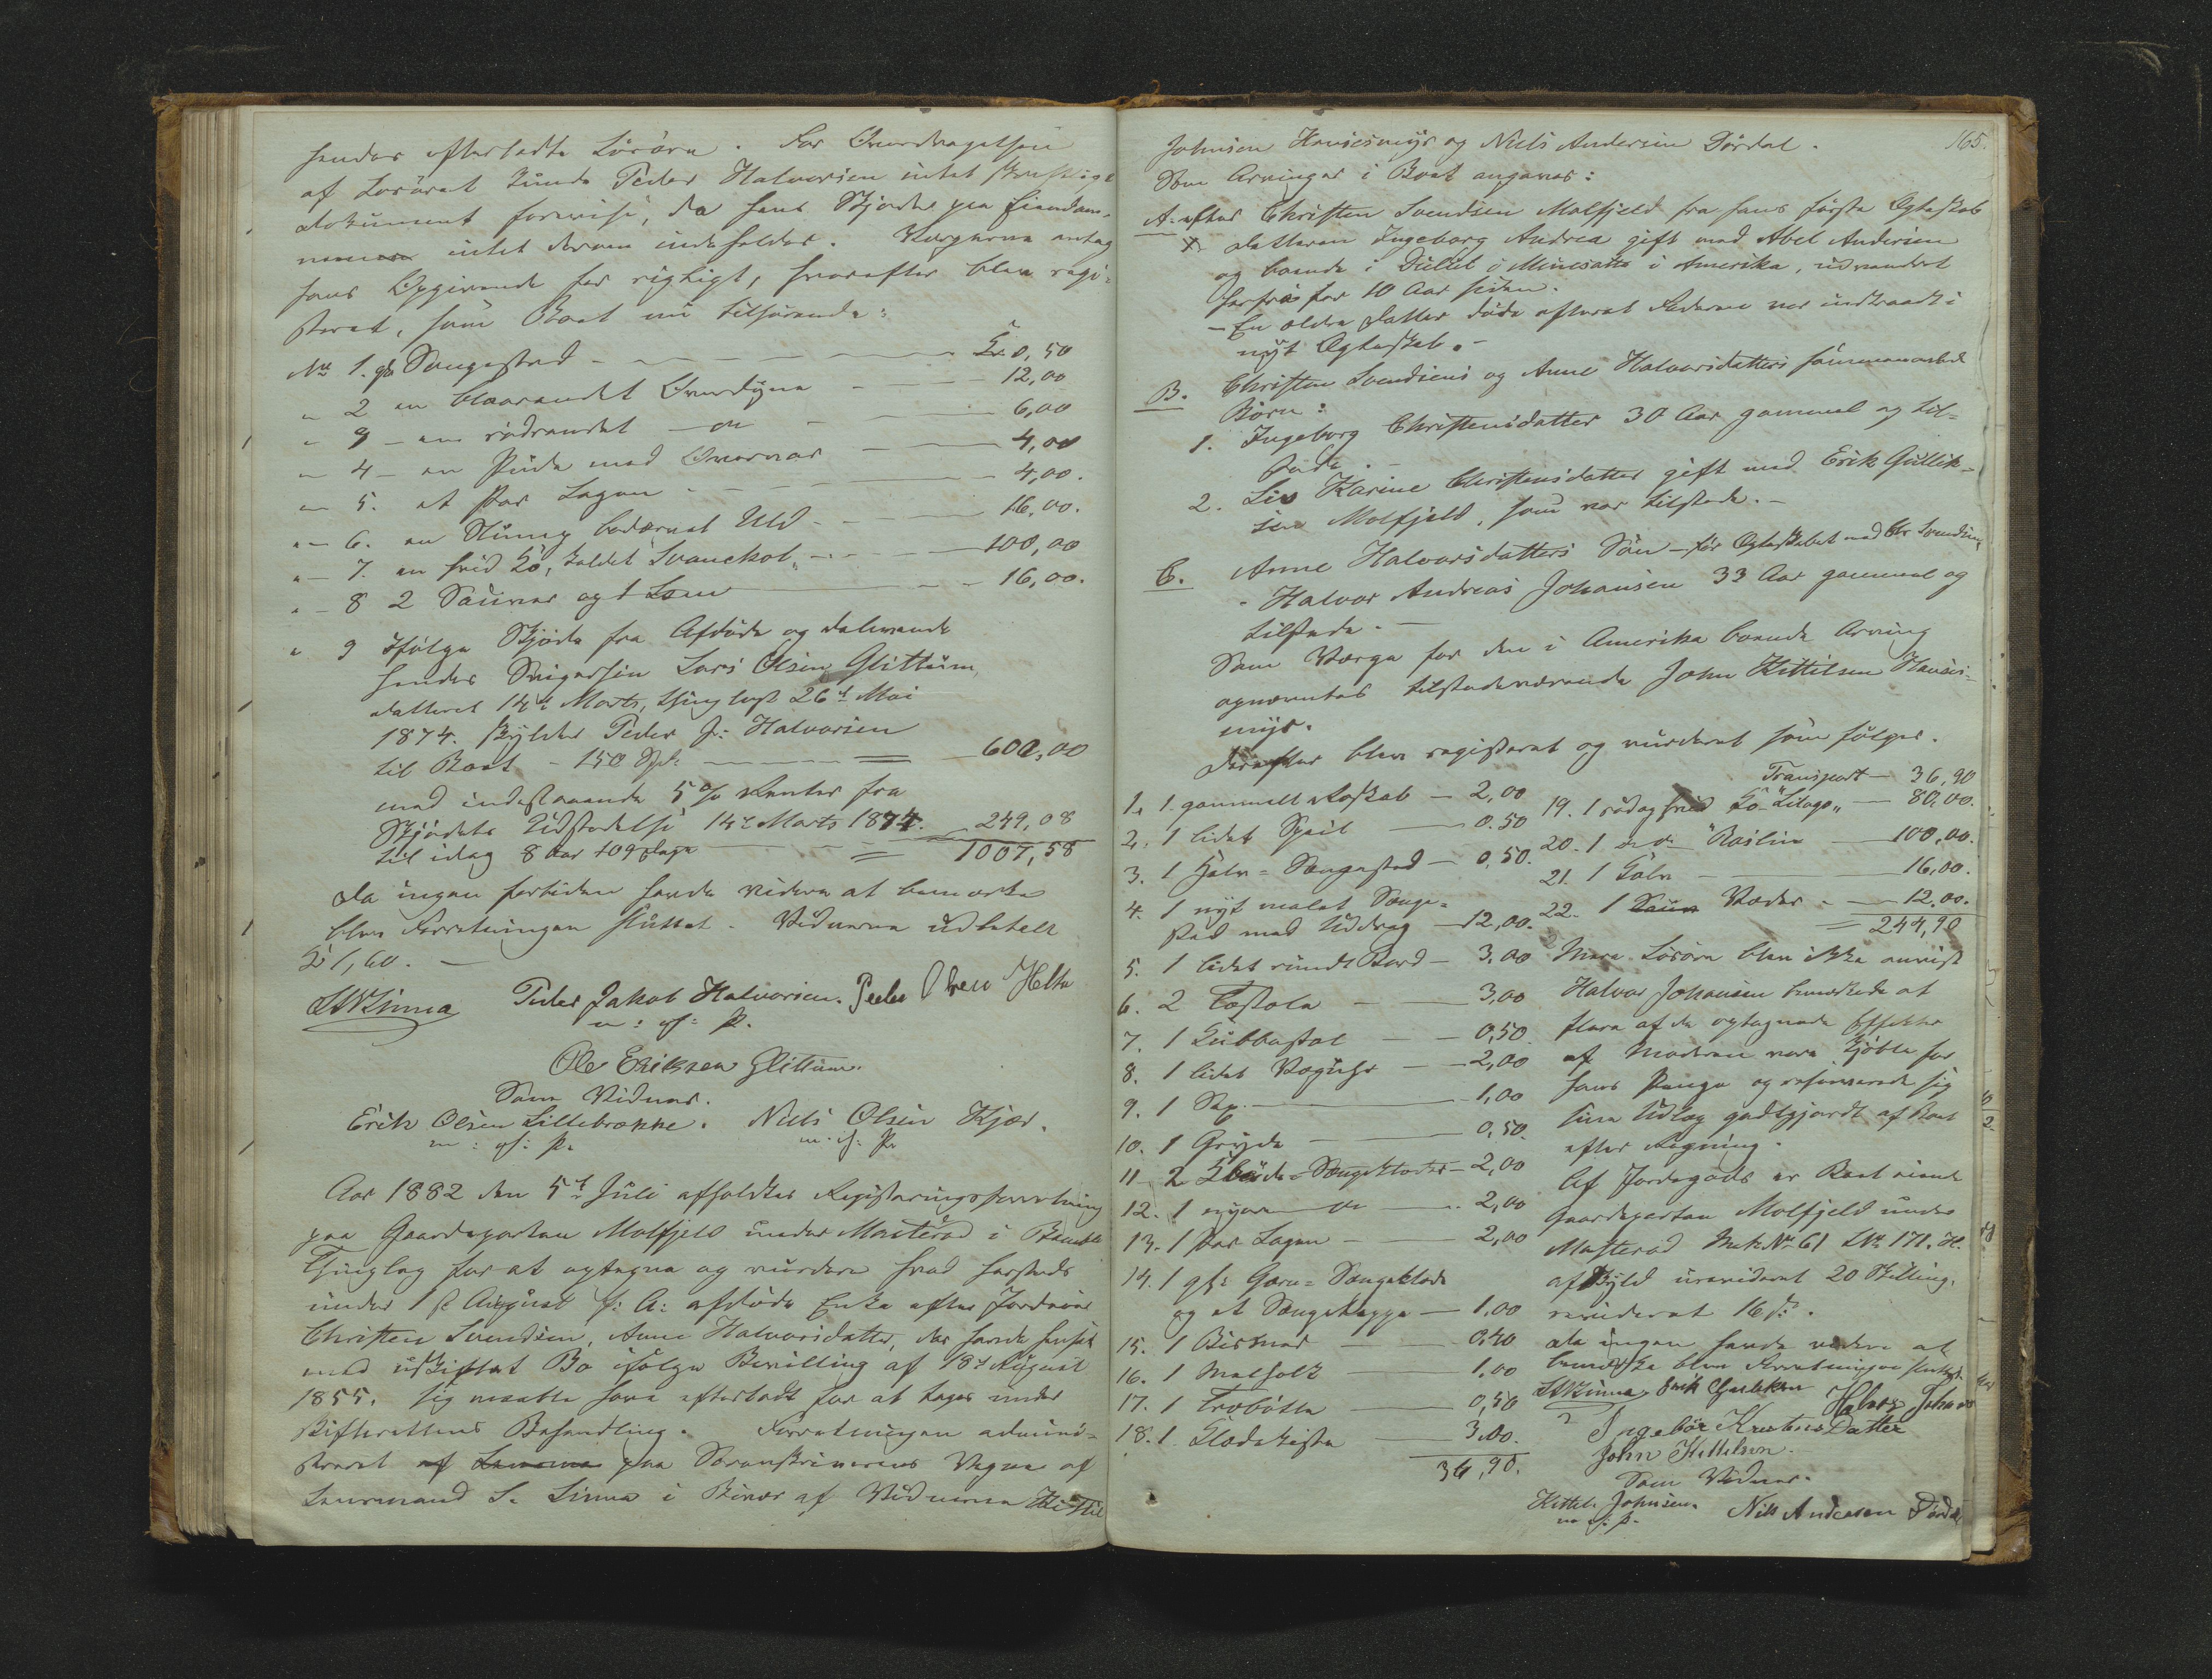 hendes efterladte Løsøre. For Overdragelsen
af Løsøret kunde Peder Halvorsen intet skriftligt
dokument forevise, da hans Skjøde paa Eiendom-
men intet derom indeholder. Værgerne antog
hans Opgivende for rigtigt, hvorefter blev regi-
streret, som Boet nu tilhørende:
No 1. gl Sengested - Kr. 0,50
" 2 en blaarandet Overdyne - 12,00
" 3 - en rødrandet - do - 6,00
" 4 - en Pude med Overvar - 4,00
" 5. et Par Lagen - 4,00.
" 6. en Uld - 16,00.
" 7. en hvid Ko, kaldet Svanehol - 100,00
" 8 2 Sauer og 1 Lam - 16,00.
" 9 Ifølge Skjøde fra Afdøde og dalevende
hendes Svigersøn Lars Olsen Glittum,
dateret 14de Marts, thinglyst 26de Mai
1874. skylder Peder J: Halvorsen
til Boet - 150 Spd: = 600,00
med indestaaende 5 % Renter fra
Skjødets Udstedelse 14de Marts 1874.
til idag 8 Aar 109 Dage = 249,08
1007,58
Da ingen forhiden havde videre at bemærke
blev Forretningen sluttet. Vidnerne udbetalt
Kr 1,60.
Linna Peder Jakob Halvorsen. Peder Olsen Helte
m: p.
Ole Eriksen Glittum.
Som Vidner.
Erik Olsen Lillebrække. Niels Olsen Kjær.
m: p. m. p.
Aar 1882 den 5te Juli afholdtes Registreringsforretning
paa Gaardsparten Molfjeld under Masterød i Bamble
Thinglag for at optegne og vurdere hvad herstede
under 1ste August f: A: afdøde Enke efter Jordeier
Christen Svendsen, Anne Halvorsdatter, der havde hensid
med uskiftet Bo ifølge Bevilling af 18de August
1855. sig maatte have efterladt for at tages under
Skifterettens Behandling. Forretningen admini-
streret af paa Sorenskriverens Vegne af
Lensmand S. Linna i Bivær af Vidnerne Kittil
165.
Johnsen Hovsesmyr og Niels Andersen Dørdal.
Som Arvinger i Boet angaves:
A. efter Christen Svendsen Molfjeld fra hans første Ægteskab
Datteren Ingeborg Andrea gift med Abel Andersen
og boende i Dulut i Minesatta i Amerika, udvandret
herfra for 10 Aar siden.
- En ældre Datter døde efterat Faderen var indtraadt i
nyt Ægteskab. -
B. Christen Svendsens og Anne Halvorsdatters sammenavlede
Børn:
1. Ingeborg Christensdatter 30 Aar gammel og til-
stede.
2. Liv Karine Christensdatter gift med Erik Gullik-
sen Molfjeld, som var tilstede. -
C. Anne Halvorsdatters Søn - før Ægteskabet med Chr Svendsen,
- Halvor Andreas Johansen 33 Aar gammel og
tilstede. -
Som Værge for den i Amerika boende Arving
opnævntes tilstedeværende John Kittilsen Hovses-
myr.
Derefter blev registreret og vurderet som følger.
1. 1. gammelt Klæskab - 2,00
2. 1 lidet Speil - 0.50
3. 1 Halv-Sengested - 0,50.
4. 1 nyt malet Senge-
sted med Uddrag - 12,00.
5. 1 lidet rundt Bord - 3,00
6. 2 Træstole - 3,00
7. 1 Kubbestol - 0,50
8. 1 lidet Væguhr - 2,00
9. 1 Sag - 1,00
10. 1 Gryde - 0,50.
11 - 2 Klude-Sengeklæder - 2,00
12. 1 nyere do - 2,00
13. 1 Par Lagen - 2,00
14. 1 gl: Garn-Sengeklæde
og et Sengetæppe - 1,00
15. 1 Bismer - 0,40
16. 1 - 1.00
17. 1 Træbøtte - 0,50
18. 1 Klædekiste - 3,00.
36,90.
Transport - 36,90
19. 1 rødag hvid Ko "Lilago" - 80,00.
20. 1 do "Roslin" - 100,00.
21. 1 Kalv - 16,00.
22. 1 Sau Væder - 12,00.
= 244,90
Mere Løsøre blev ikke anvist
Halvor Johansen bemærkede at
flere af de optegnede Effekter
af Moderen vare kjøbte for
hans Penge og reserverede sig
sine Udlæg godtgjordt af Boet
efter Regning.
Af Jordegods er Boet eiende
Gaardsparten Molfjeld under
Masterød Matr No 61 LNo 171. H.
af Skyld urevideret 20 Skilling.
revideret 16 s:.
Da ingen havde videre at
bemærke blev Forretningen sluttet.
Linna. Erik Gulleksen Halvor Johans
Ingebør KrestensDatter
John Kittelsen.
Som Vidner.
Kittil Johnsen. Nils Andersen Dørdal
m. p.